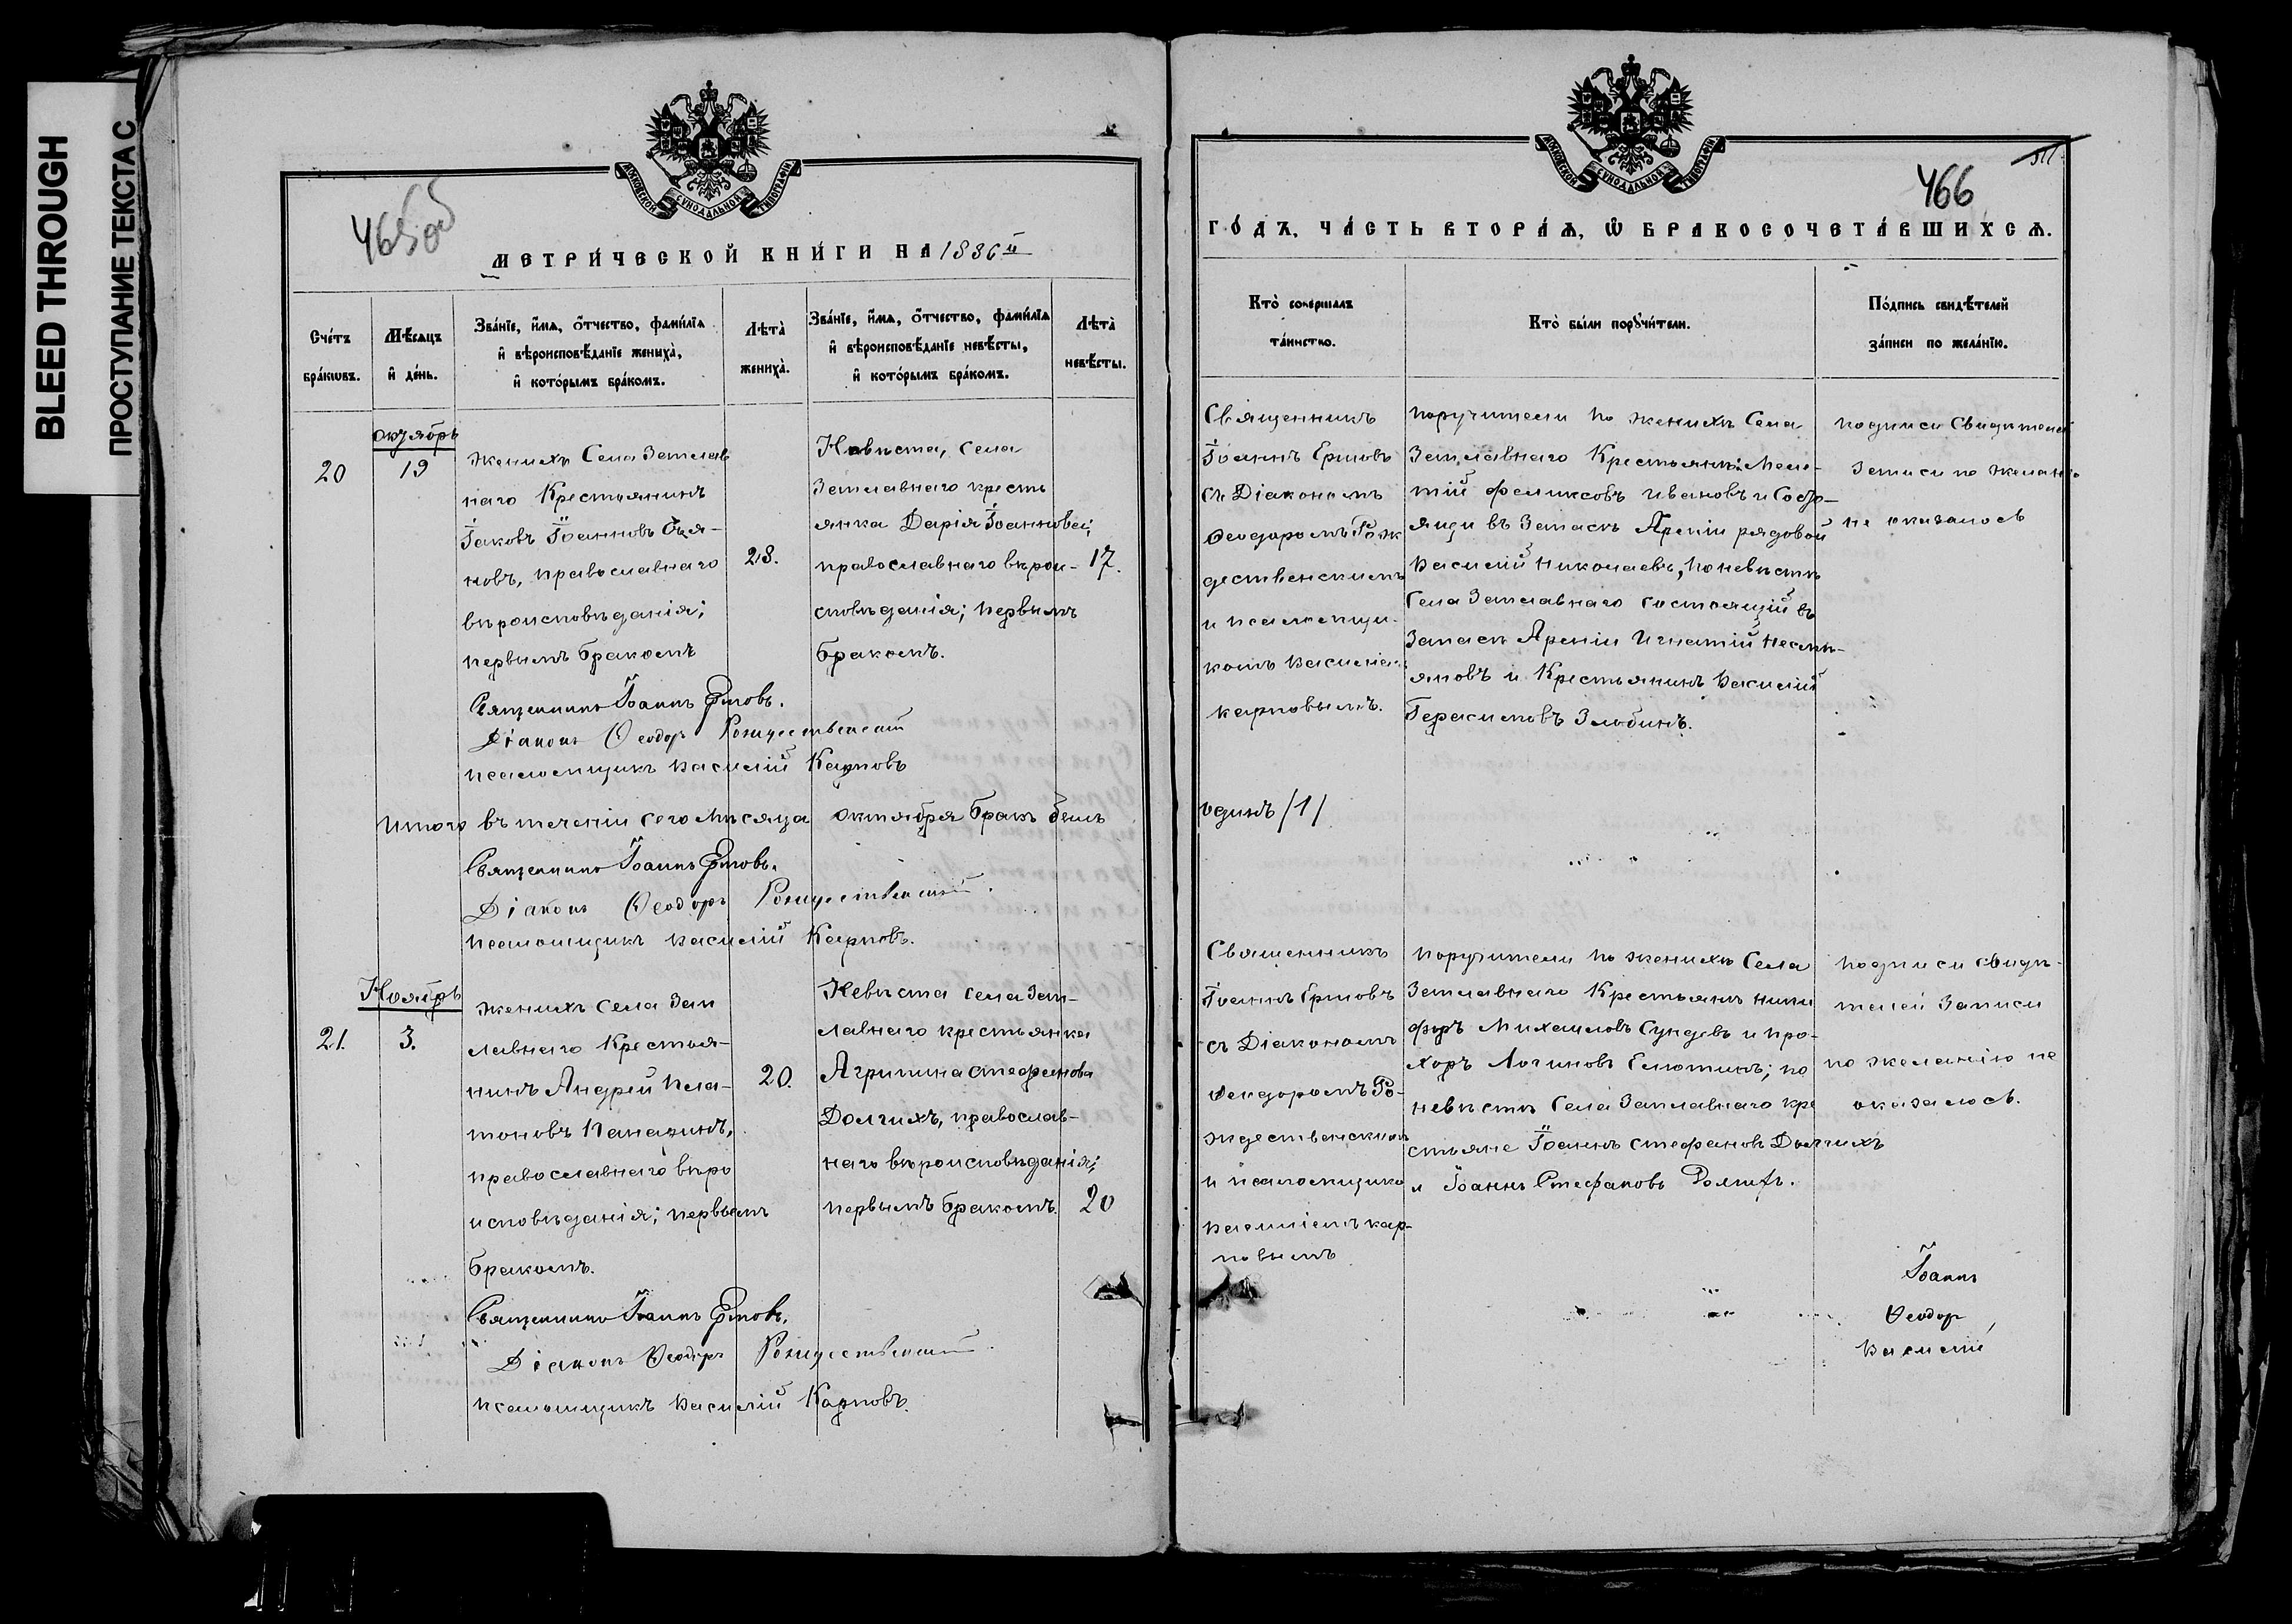 BLEED THROUGH
ПРОСТУПАНИЕ ТЕКСТА С
МОСКОВСКОЙ СѴНОДАЛЬНОЙ ТИПОГРАФІИ
465об
МЕТРИ́ЧЕСКОЙ КНИ́ГИ НА 1886й
Сче́тъ бра́кѡвъ.
Мѣ́сѧцъ и҆ де́нь.
Зва́нїе, и҆́мѧ, ѻ҆́тчество, фами́лїѧ и҆ вѣроисповѣ́данїе жениха̀, и҆ кото́рымъ бра́комъ.
Лѣта̀ жениха̀.
Зва́нїе, и҆́мѧ, ѻ҆́тчество, фами́лїѧ и҆ вѣроисповѣ́данїе невѣ́сты, и҆ кото́рымъ бра́комъ.
Лѣта̀ невѣ́сты.
октябрь
20
19
женихъ Села Заплав
наго Крестьянинъ
Іаковъ Іоанновъ
новъ, православнаго
вѣроисповѣданія;
первымъ бракомъ
28.
Невѣста, села
Заплавнаго кресть
янка Дарія Іоаннова;
православнаго вѣрои-
сповѣданія; первымъ
бракомъ.
17.
Священникъ Іоаннъ Ершовъ.
Діаконъ Ѳеодоръ Рождественскій
псаломщикъ Василій Карповъ
Итого въ теченіи сего Мѣсяца октября бракъ былъ
Священникъ Іоаннъ Ершовъ.
Діаконъ Ѳеодоръ Рождественскій.
псаломщикъ Василій Карповъ.
Ноябрь
21.
3.
женихъ села Зап
лавнаго Крестья-
нинъ Андрей Пла-
тоновъ
православнаго вѣро
исповѣданія; первымъ
бракомъ.
20.
Невѣста села Зап-
лавнаго крестьянка
Агрипина Стефанова
Долгихъ, православ-
наго вѣроисповѣданія;
первымъ бракомъ.
20
Священникъ Іоаннъ Ершовъ.
Діаконъ Ѳеодоръ Рождественскій.
псаломщикъ Василій Карповъ.
МОСКОВСКОЙ СѴНОДАЛЬНОЙ ТИПОГРАФІИ
466
ГО́ДЪ, ЧА́СТЬ ВТОРА́Ѧ, Ѡ҆ БРАКОСОЧЕТА́ВШИХСѦ.
Кто̀ соверша́лъ та́инство.
Кто̀ бы́ли порꙋчи́тели.
По́дпись свидѣ́телей за́писи по жела́нїю.
Священникъ
Іоаннъ Ершовъ
съ Діакономъ
Ѳеодоромъ Рож
дественскимъ
и псаломщи-
комъ Василіемъ
карповымъ.
поручители по женихѣ Села
Заплавнаго Крестьянинъ Меле-
тій феликсовъ Ивановъ и Состо-
ящи въ Запасѣ Арміи рядовой
Василій Николаевъ, по невѣстѣ
Села Заплавнаго состоящій въ
Запасѣ Арміи Игнатій Несмѣ-
яновъ и Крестьянинъ Василій
Герасимовъ Злобинъ.
подписи Свидѣтелей
Записи по желанію
не оказалось
одинъ /1/
Священникъ
Іоаннъ Ершовъ
съ Діакономъ
Ѳеодоромъ Ро-
ждественскимъ
и псаломщико
Василіемъ кар-
повымъ
поручители по женихѣ Села
Заплавнаго Крестьянъ Ники
форъ Михаиловъ и Про-
хоръ Логиновъ по
невѣстѣ Села Заплавнаго кре
стьяне Іоаннъ Стефановъ Долгихъ
и Іоаннъ Стефановъ Долгихъ.
подписи свидѣ-
телей Записи
по желанію не
оказалось.
Іоаннъ
Ѳеодоръ
Василій